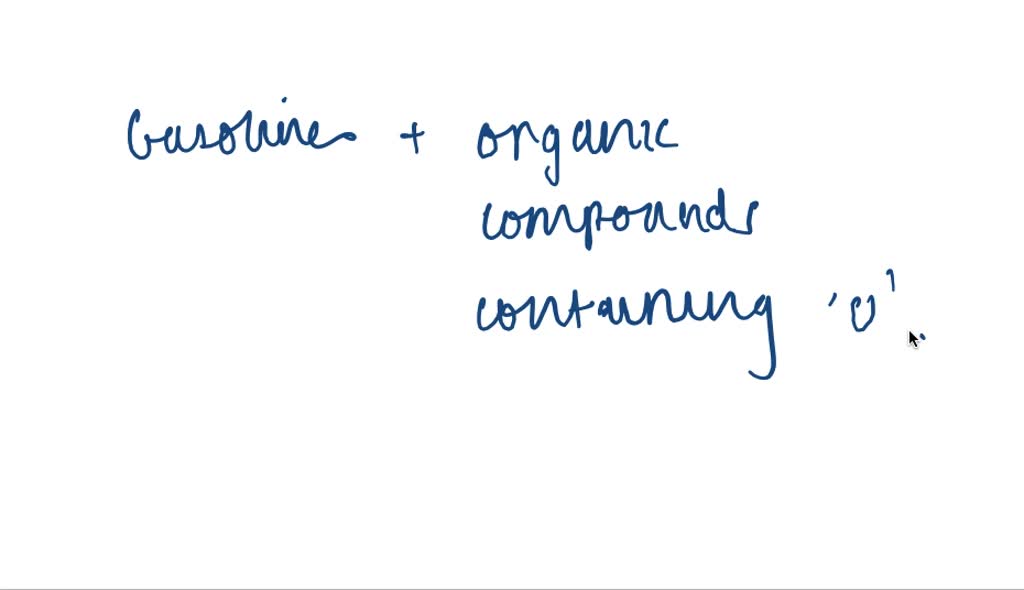 Gasoline + organic
compounds
containing 'O'.